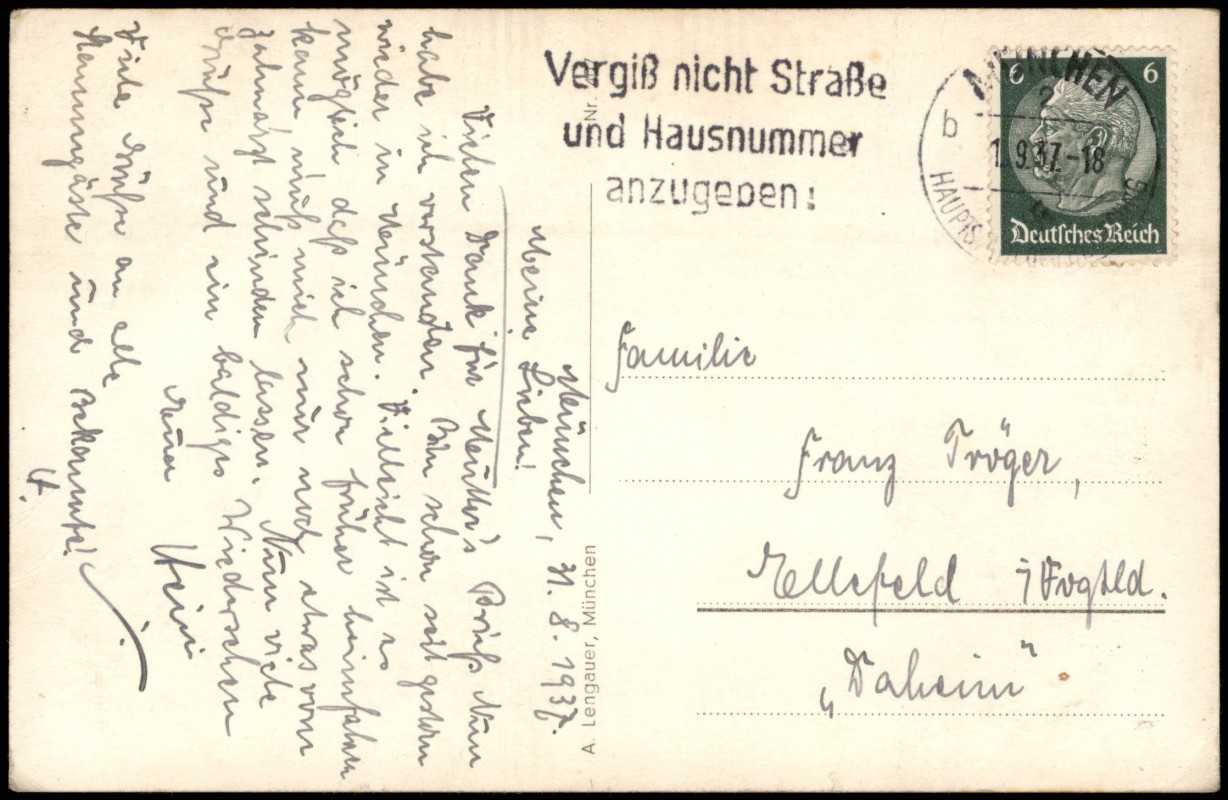 Vergiß nicht Straße
und Hausnummer
anzugeben!
MÜNCHEN
2
b
1.9.37.-18
HAUPTS
6 6
Deutsches Reich
München, 31.8.1937.
Meine Lieben!
Vielen Dank für Mutter's Brief. Nun
habe ich verstanden. Bin schon seit gestern
wieder in München. Vielleicht ist es
möglich, daß ich schon früher heimfahren
kann, muß mich nur noch etwas vom
Zahnarzt schinden lassen. Nun viele
Grüße und ein baldiges Wiedersehen
Euer
Heini
Viele Grüße an alle
Stammgäste und Bekannte!
Familie
Franz Tröger,
Ellefeld i/Vogtld.
„Daheim"
A. Lengauer, München
Nr.